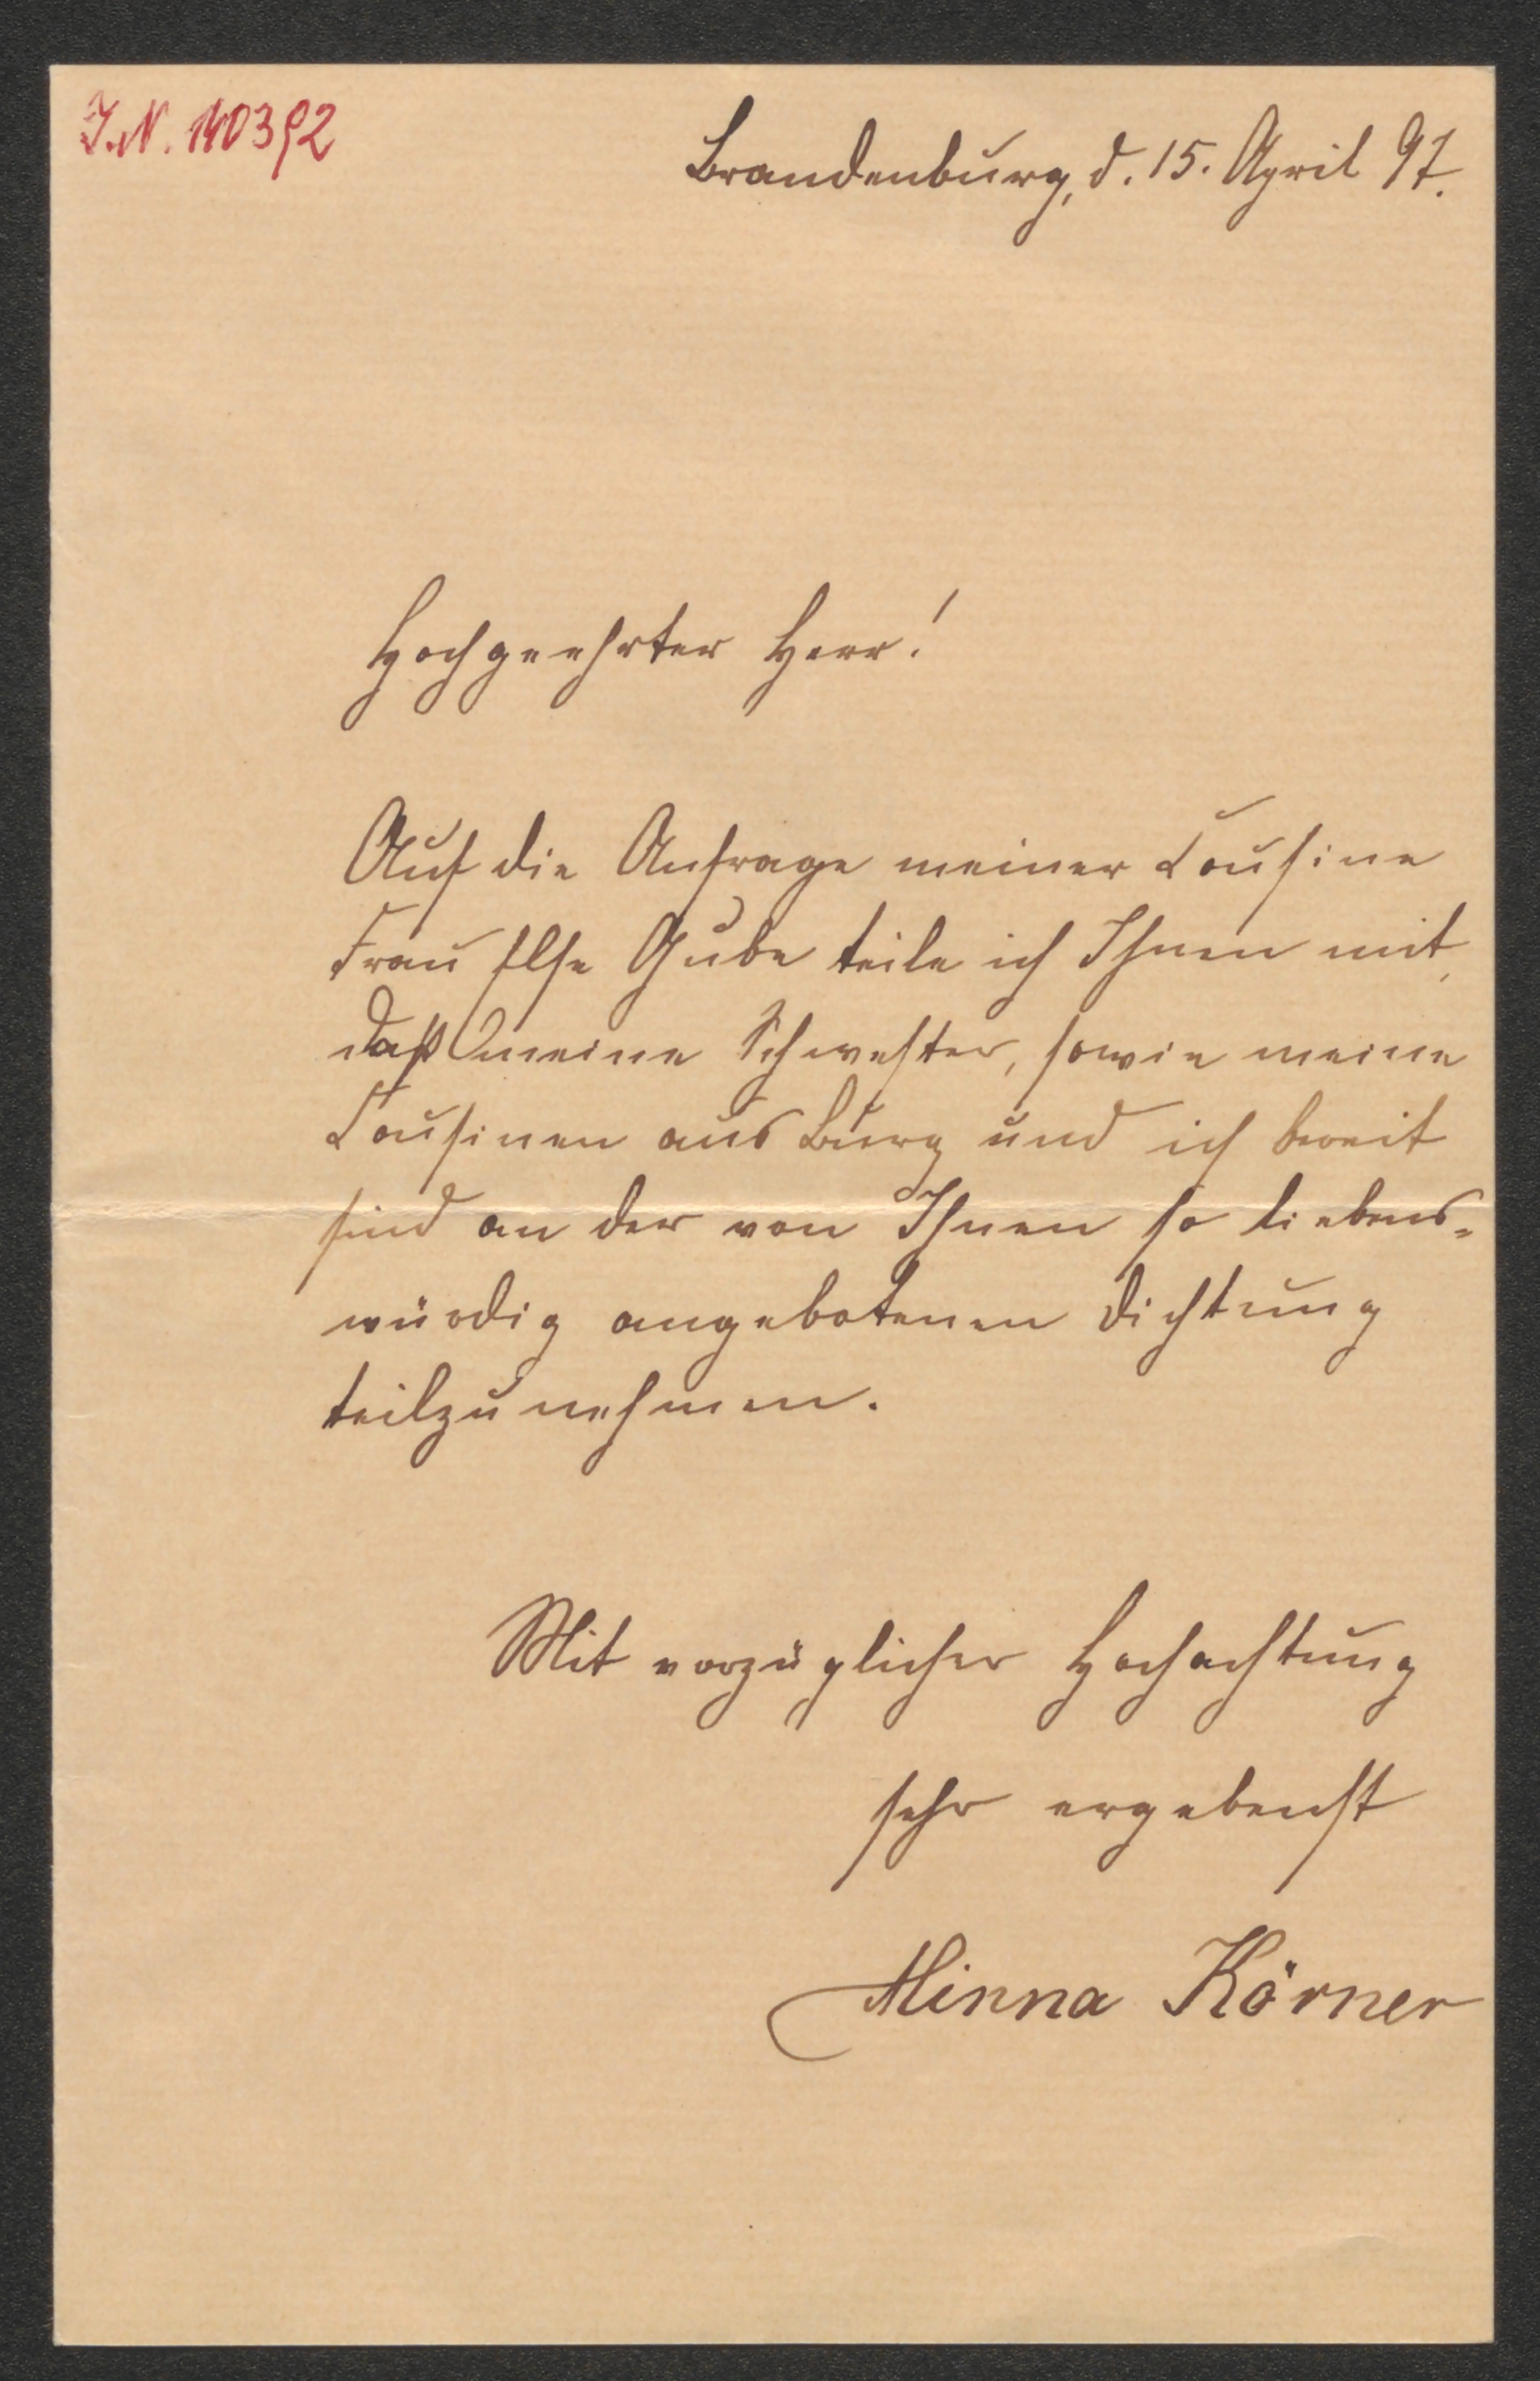 J.N. 140392
Brandenburg, d. 15. April 97.
Hochgeehrter Herr!
Auf die Anfrage meiner Cousine
Frau Else Gube teile ich Ihnen mit,
daß meine Schwester, sowie meine
Cousinen aus Burg und ich bereit
sind an der von Ihnen so liebens-
würdig angebotenen Dichtung
teilzunehmen.
Mit vorzüglicher Hochachtung
sehr ergebenst
Minna Körner